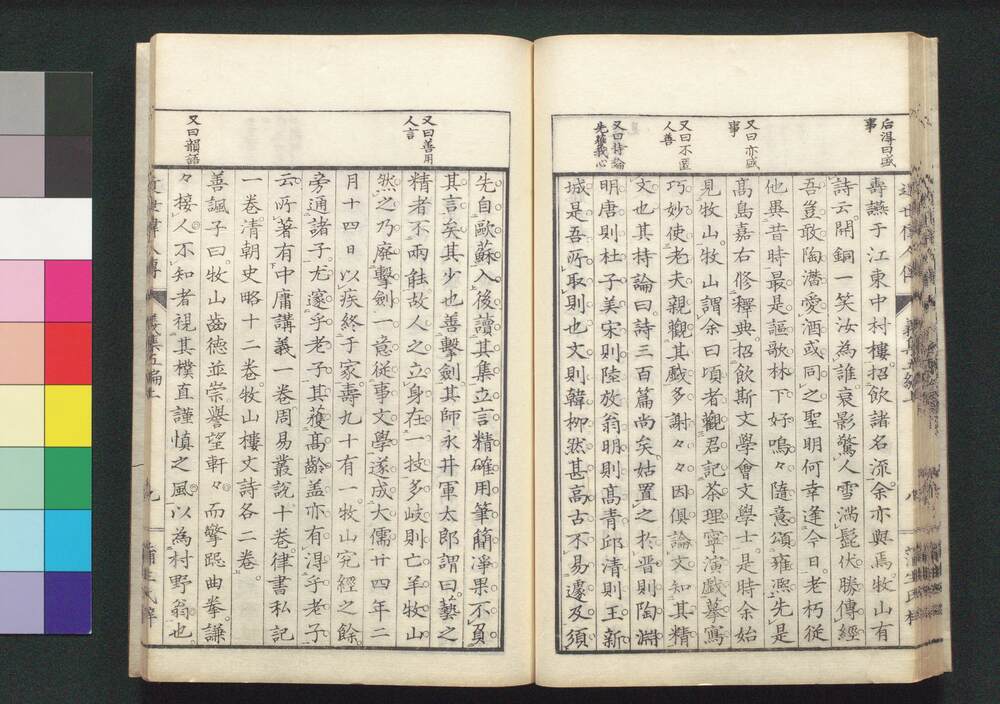 后淂曰盛
事
又曰亦盛
事
又曰不匿
人善
又曰持論
先獲我心
壽讌于江東中村樓招飲諸名流余亦與焉牧山有
詩云開銅一笑汝為誰衰影驚人雪滿髭伏勝傳經
吾豈敢陶潛愛酒或同之聖明何幸逢今日老朽從
他異昔時最是謳歌林下好嗚々隨意頌雍熙先是
髙島嘉右修釋典招飲斯文學會文學士是時余始
見牧山牧山謂余曰頃者觀君記茶理寧演戲摹寫
巧妙使老夫親觀其戲多謝々々因俱論文知其精
文也其持論曰詩三百篇尚矣姑置之於晋則陶淵
明唐則杜子美宋則陸放翁明則髙青邱清則王新
城是吾所取則也文則韓柳然甚髙古不易遽及須
又曰善用
人言
又曰韻語
先自歐蘇入後讀其集立言精確用筆簡淨果不負
其言矣其少也善擊劍其師永井軍太郎謂曰藝之
精者不兩能故人之立身在一技多岐則亡羊牧山
然之乃廢擊劍一意從事文學遂成大儒廿四年二
月十四日以疾終于家壽九十有一牧山究經之餘
旁通諸子尤邃乎老子其獲髙齡盖亦有淂乎老子
云所著有中庸講義一卷周易叢説十卷律書私記
一卷清朝史略十二卷牧山樓文詩各二卷
善諷子曰牧山齒德並崇譽望軒々而擎跽曲拳謙
々接人不知者視其樸直謹慎之風以為村野翁也